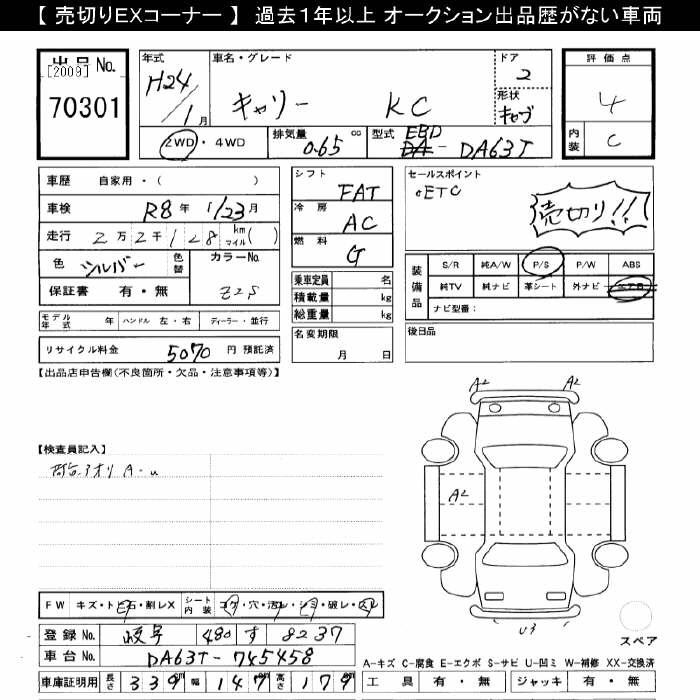 【 売切りEXコーナー 】 過去1年以上 オークション出品歴がない車両
出品 No.
[2009]
70301
年式
H24/1月
車名・グレード
キャリー KC
ドア
2
形状
キャブ
評価点
4
内装
C
2WD・4WD
排気量
0.65 cc
型式
EBD
DA - DA63T
車歴 自家用・( )
車検 R8年 1/23月
走行 2万2千128 km マイル( )
色 シルバー 色替
カラーNo.
Z2S
保証書 有・無
シフト
FAT
冷房
AC
燃料
G
セールスポイント
○ETC
売切り!!
乗車定員 名
積載量 kg
総重量 kg
装備品
S/R 純A/W P/S P/W ABS
純TV 純ナビ 革シート 外ナビ
ナビ型番:
モデル年式 年 ハンドル 左・右 ディーラー・並行
リサイクル料金 5070 円 預託済
名変期限
月 日
後日品
【出品店申告欄(不良箇所・欠品・注意事項等)】
A2 A2
【検査員記入】
アオリ A-u
A2
U3
スペア
FW キズ・トビ石・割レX シート内装 コゲ・穴・汚レ・シミ・破レ・スレ
登録No. 岐阜 480 す 8237
車台No. DA63T-745458
車庫証明用 長さ 339 幅 147 高さ 179
A-キズ C-腐食 E-エクボ S-サビ U-凹ミ W-補修 XX-交換済
工具 有・無 ジャッキ 有・無